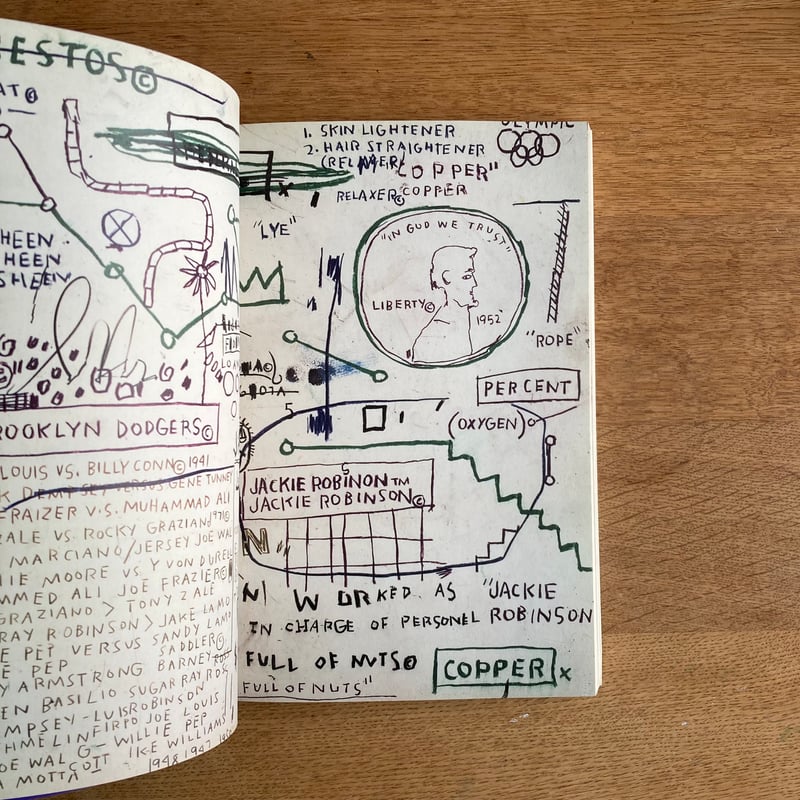 ESTOS©
AT©
HEEN
HEEN
SHEEN
ROOKLYN DODGERS©
LOUIS VS. BILLY CONN© 1941
K DEMPSEY VERSUS GENE TUNNEY
FRAIZER V.S. MUHAMMAD ALI
ZALE VS. ROCKY GRAZIANO
MARCIANO/JERSEY JOE WAL
IE MOORE VS. YVON DURELL
MMED ALI JOE FRAZIER©
GRAZIANO > TONY ZALE
RAY ROBINSON > JAKE LAMO
E PEP VERSUS SANDY
E PEP SADDLER©
Y ARMSTRONG BARNEY ROSS
EN BASILIO SUGAR RAY
MPSEY - LUIS ROBINSON
HMELIN FIRPO JOE LOUIS
OE WALCOTT - WILLIE PEP
A MOTTA IKE WILLIAMS
1948 1947
1. SKIN LIGHTENER
2. HAIR STRAIGHTENER
(RELAXER)
COPPER"
RELAXER© COPPER
OLYMPIC
"LYE"
"IN GOD WE TRUST"
LIBERTY©
1952
"ROPE"
PERCENT
(OXYGEN)
5
JACKIE ROBINON™
S
JACKIE ROBINSON©
N) WORKED AS "JACKIE
IN CHARGE OF PERSONEL ROBINSON
FULL OF NUTS©
FULL OF NUTS"
COPPER x